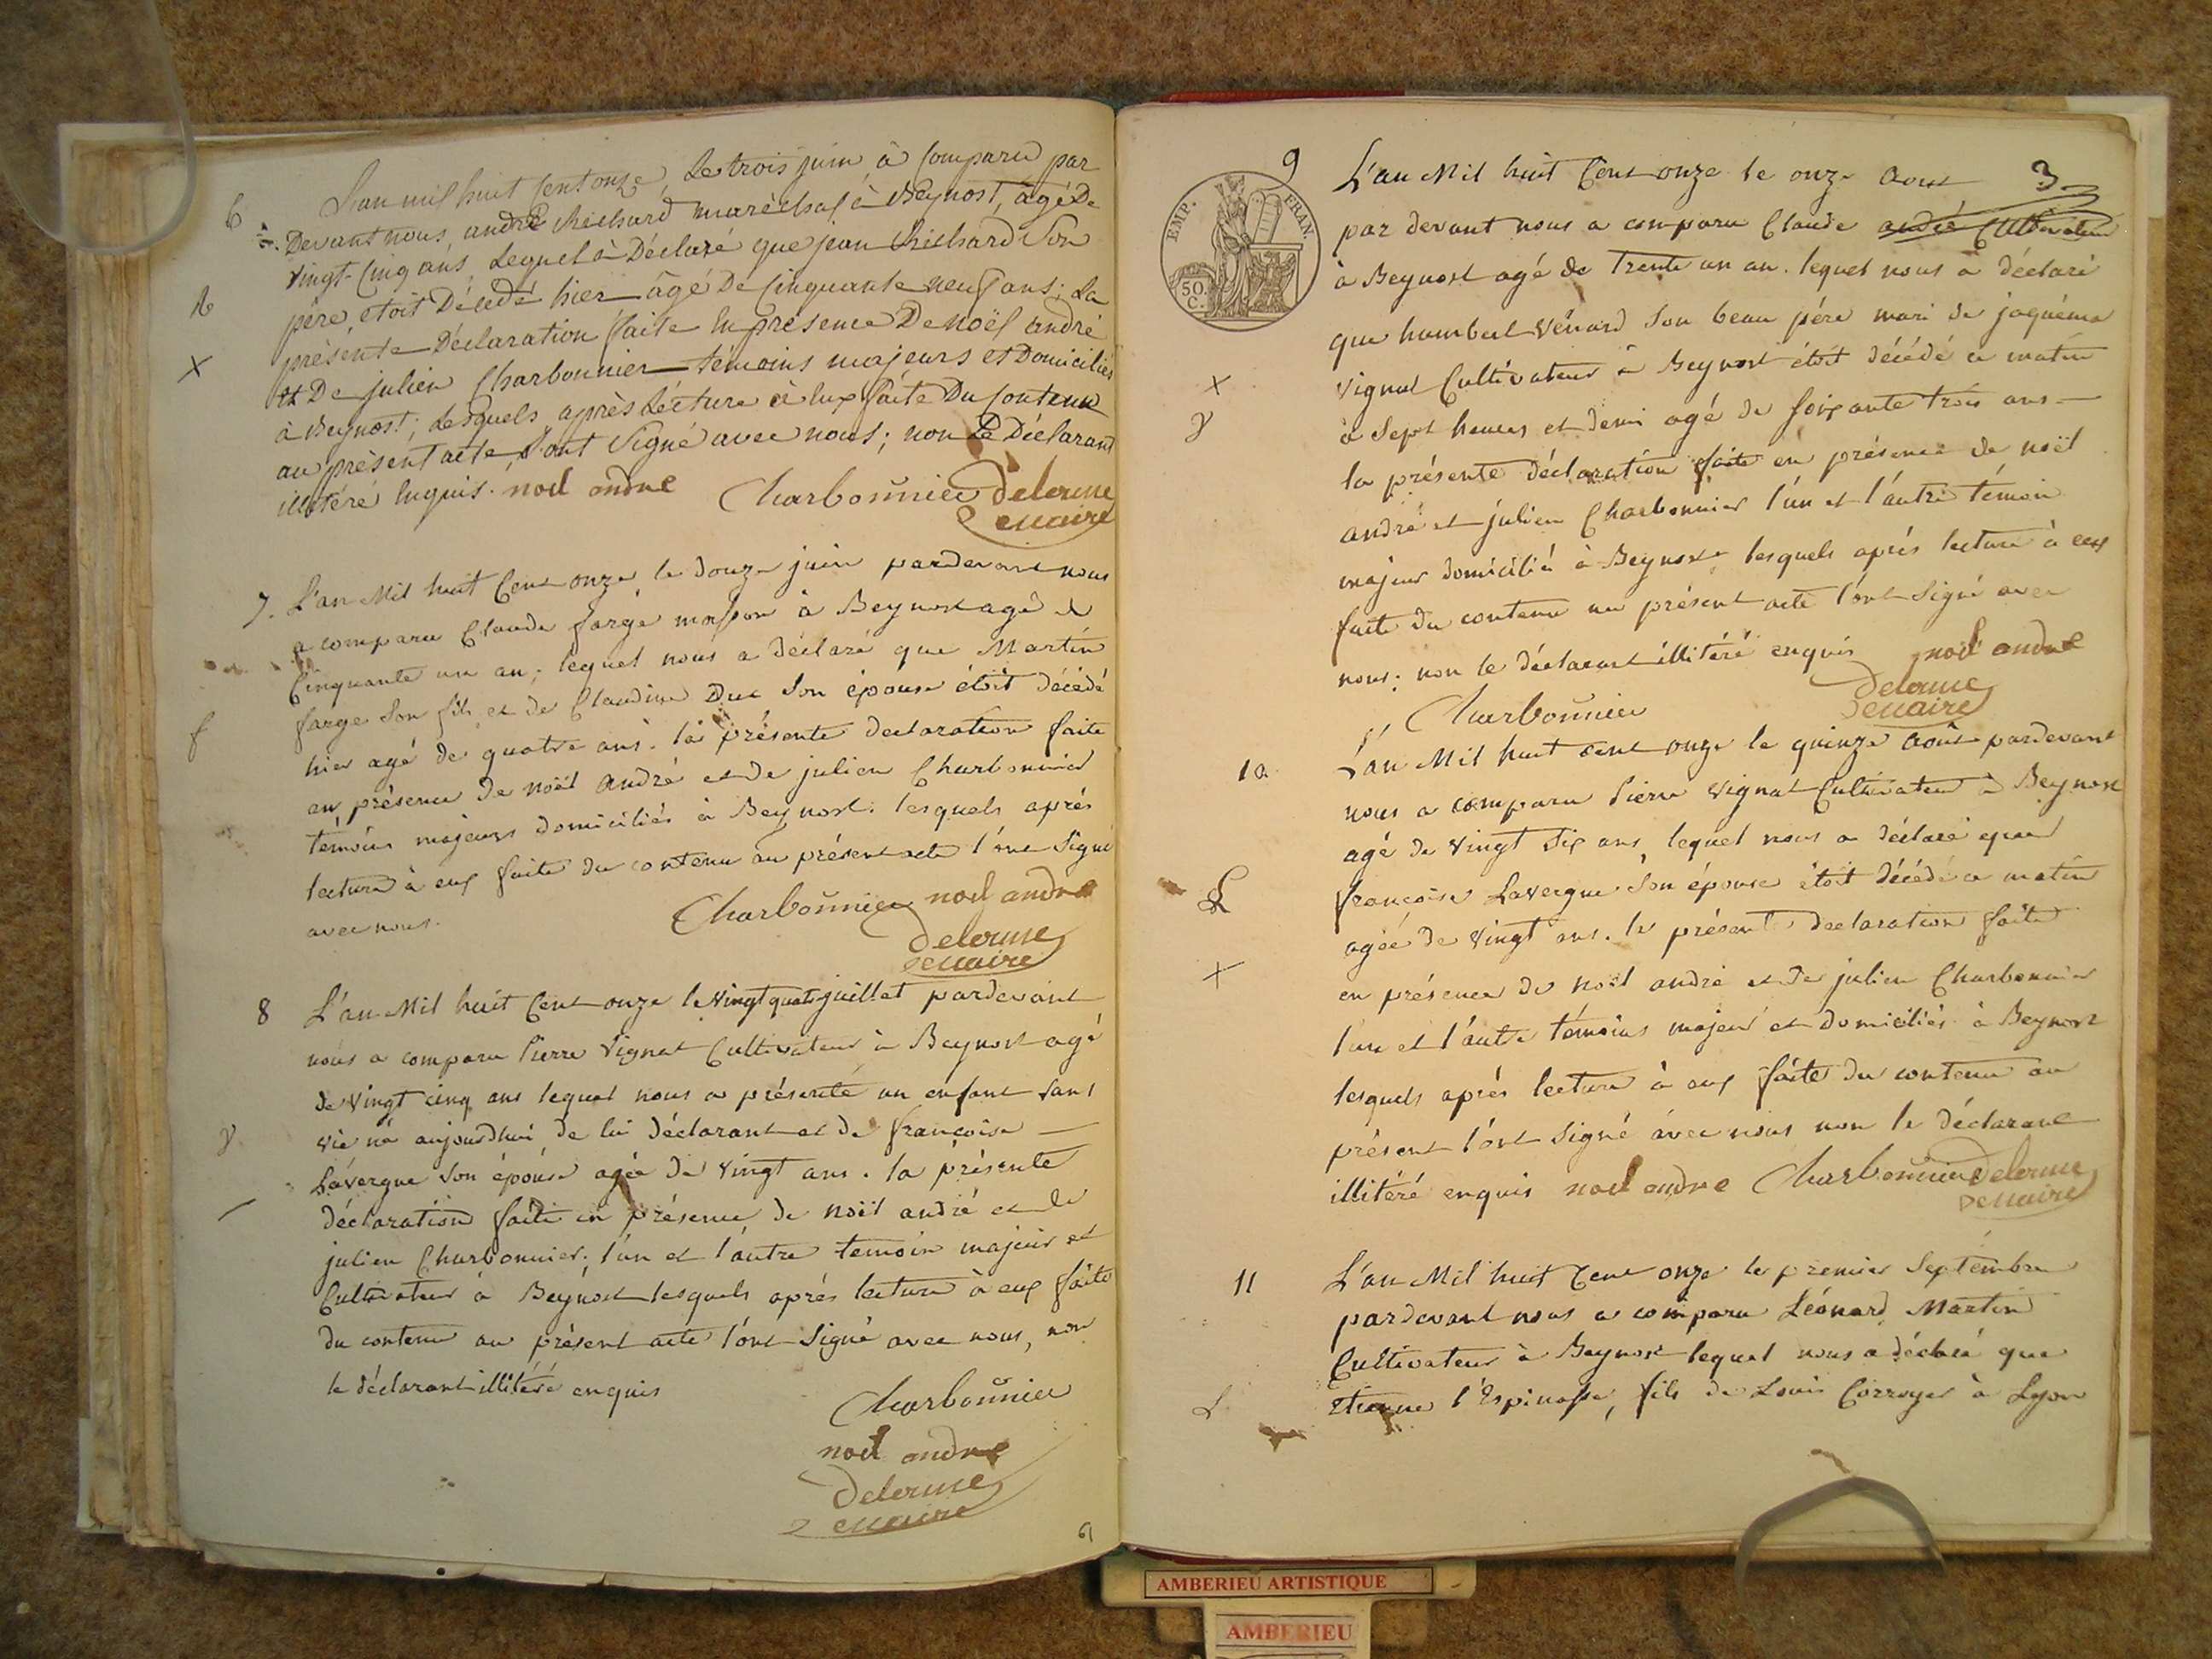 6 L'an mil huit Cent onze, Le trois juin à Comparu par
Devant nous, andré Richard maréchal à Beynost, âgé De
vingt-Cinq ans, Lequel à Déclaré que jean Richard Son
père, étoit Décédé hier âgé De Cinquante neuf ans; La
R
présente Déclaration faite En présence De noël andré
X
et De julien Charbonnier témoins majeurs et Domiciliés
à Beynost; Lesquels après Lécture à Eux faite Du Contenu
au présent acte, L'ont Signé avec nous; non Le Déclarant
illitéré Enquis. noel andre Charbonnier Delorme
maire
7. L'an Mil huit Cent onze, le douze juin pardevant nous
a comparu Claude farge masson à Beynost agé de
Cinquante un an; lequel nous a déclaré que Martin
farge Son fils et de Claudine Duc Son épouse étoit décédé
f
hier agé de quatre ans. la présente declaration faite
en présence de noël andré et de julien Charbonnier
témoins majeurs domiciliés à Beynost. lesquels aprés
lecture à eux faite du contenu au présent acte l'ont Signé
avec nous. Charbonnier noel andre
Delorme
maire
8 L'an Mil huit Cent onze le vingt quatre juillet pardevant
nous a comparu Pierre Vignat Cultivateur à Beynost agé
de vingt cinq ans lequel nous a présenté un enfant sans
V
vie né aujourdhui de lui déclarant et de françoise
Lavergne Son épouse agée de vingt ans. la présente
déclaration faite en présence de noël andré et de
julien Charbonnier; l'un et l'autre temoin majeur et
Cultivateur à Beynost lesquels aprés lecture à eux faite
du contenu au présent acte l'ont Signé avec nous, non
le déclarant illitéré enquis
Charbonnier
noel andre
Delorme
maire
3
EMP. FRAN.
50 C.
9 L'an Mil huit Cent onze le onze Aout
par devant nous a comparu Claude andré Cultivateur
à Beynost agé de Trente un an. lequel nous a déclaré
que humbert Vénard Son beau pére mari de jaquéma
X
Vignat Cultivateur à Beynost étoit décédé ce matin
V
à Sept heures et demi agé de Soixante trois ans
la présente déclaration faite en présence de noël
andré et julien Charbonnier l'un et l'autre témoin
majeur domicilié à Beynost lesquels aprés lecture à eux
faite du contenu au présent acte l'ont Signé avec
nous; non le déclarant illitéré enquis noel andre
Charbonnier Delorme
maire
10 L'an Mil huit cent onze le quinze Août pardevant
nous a comparu Pierre Vignat Cultivateur à Beynost
agé de vingt Six ans, lequel nous a déclaré que
L
françoise Lavergne Son épouse étoit décédé ce matin
agée de vingt ans. la présente declaration faite
X
en présence de noël andré et de julien Charbonnier
l'un et l'autre témoins majeur et domiciliés à Beynost
lesquels aprés lecture à eux faite du contenu au
présent l'ont Signé avec nous non le déclarant
illitéré enquis noel andre Charbonnier Delorme
maire
11 L'an Mil huit Cent onze le premier Septembre
pardevant nous a comparu Léonard Martin
Cultivateur à Beynost lequel nous a déclaré que
L
Etienne l'Espinasse, fils de Louis Corroyer à Lyon
AMBERIEU ARTISTIQUE
AMBERIEU